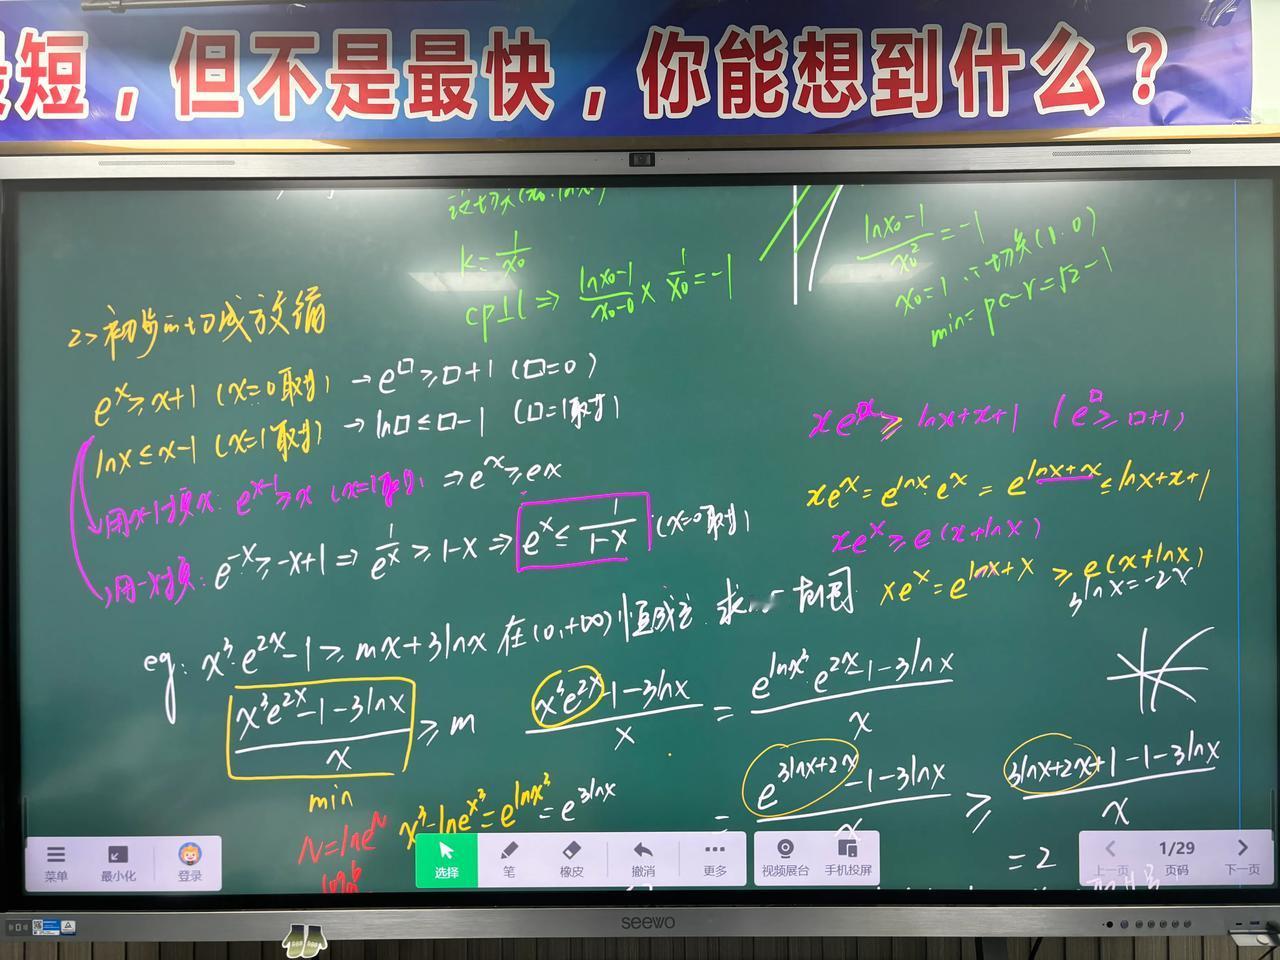 短，但不是最快，你能想到什么？
k=1/x₀
cp⊥l ⇒ (lnx₀-1)/(x₀-0) × 1/x₀ = -1
(lnx₀-1)/x₀² = -1
x₀=1 ∴切点(1,0)
min=pc-r=√2-1
2>初步的切线放缩
eˣ≥x+1 (x=0取等) → e^□≥□+1 (□=0)
lnx≤x-1 (x=1取等) → ln□≤□-1 (□=1取等)
用x-1换x: e^(x-1)≥x (x=1取等) ⇒ eˣ≥ex
用-x换: e^(-x)≥-x+1 ⇒ 1/eˣ≥1-x ⇒ eˣ≤1/(1-x) (x=0取等)
xeˣ≥lnx+x+1 (e^□≥□+1)
xeˣ=e^(lnx)·eˣ=e^(lnx+x)≤lnx+x+1
xeˣ≥e(x+lnx)
xeˣ=e^(lnx+x)≥e(x+lnx)
3lnx=-2x
eg: x³·e^(2x)-1≥mx+3lnx 在(0,+∞)恒成立 求 范围
(x³e^(2x)-1-3lnx)/x ≥m
min
(x³e^(2x)-1-3lnx)/x = (e^(lnx³)·e^(2x)-1-3lnx)/x
= (e^(3lnx+2x)-1-3lnx)/x ≥ (3lnx+2x+1-1-3lnx)/x
=2
x³=lne^(x³)=e^(lnx³)=e^(3lnx)
N=lne^N
菜单
最小化
登录
选择
笔
橡皮
撤消
更多
视频展台
手机投屏
上一页
1/29
页码
下一页
seewo